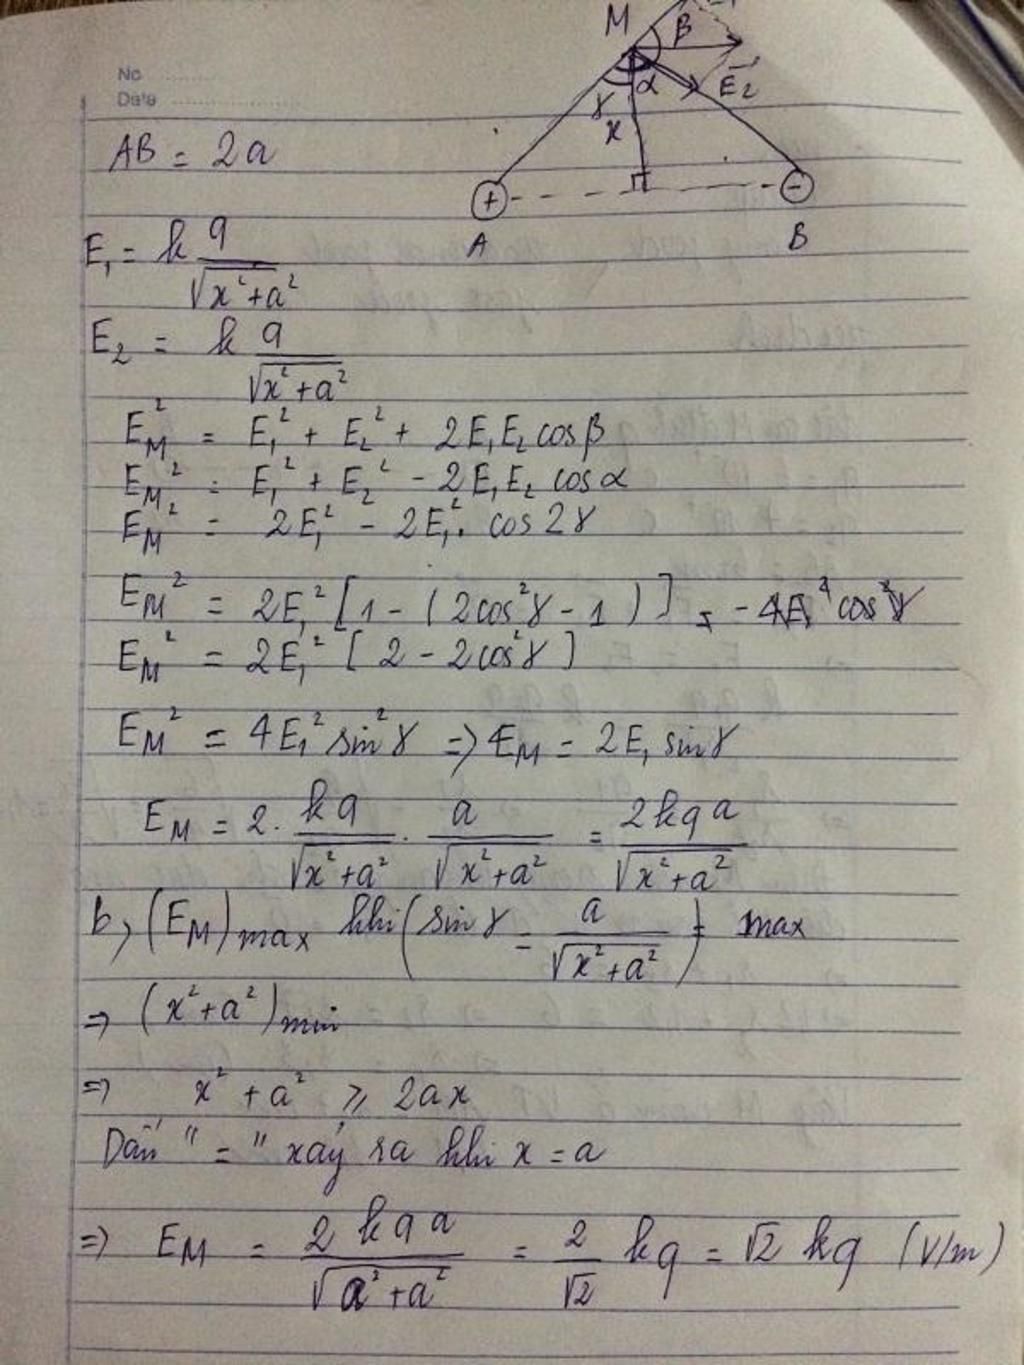 M β
No ........
Date ................
α E⃗₂
γ
x
AB = 2a
+ -
A B
E₁ = k q/√(x²+a²)
E₂ = k q/√(x²+a²)
E_M² = E₁² + E₂² + 2E₁E₂ cosβ
E_M² = E₁² + E₂² - 2E₁E₂ cosα
E_M² = 2E₁² - 2E₁². cos2γ
E_M² = 2E₁² [1 - (2cos²γ - 1)] = -4E₁⁴ cos²γ
E_M² = 2E₁² [2 - 2cos²γ]
E_M² = 4E₁² sin²γ => E_M = 2E₁ sinγ
E_M = 2. kq/√(x²+a²) . a/√(x²+a²) = 2kqa/√(x²+a²)
b, (E_M)max khi (sinγ = a/√(x²+a²)) = max
=> (x²+a²)min
=> x² + a² ≥ 2ax
Dấu " = " xảy ra khi x = a
=> E_M = 2kqa/√(a²+a²) = 2/√2 kq = √2 kq (V/m)